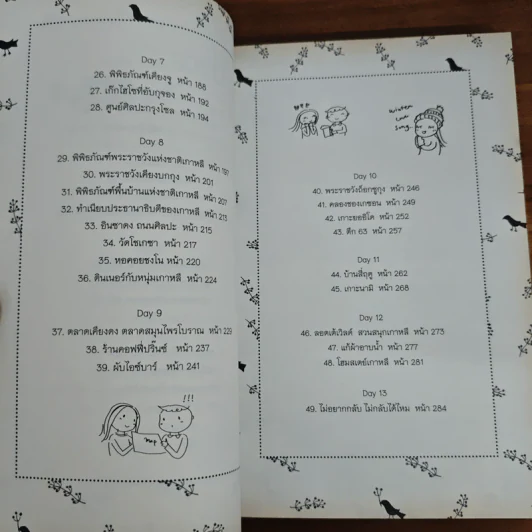 Day 7
26. พิพิธภัณฑ์เคียงจู หน้า 188
27. เก๊กไฮโซที่อับกุจอง หน้า 192
28. ศูนย์ศิลปะกรุงโซล หน้า 194
Day 8
29. พิพิธภัณฑ์พระราชวังแห่งชาติเกาหลี หน้า 197
30. พระราชวังเคียงบกกุง หน้า 201
31. พิพิธภัณฑ์พื้นบ้านแห่งชาติเกาหลี หน้า 207
32. ทำเนียบประธานาธิบดีของเกาหลี หน้า 213
33. อินซาดง ถนนศิลปะ หน้า 215
34. วัดโชเกซา หน้า 217
35. หอคอยชงโน หน้า 220
36. ดินเนอร์กับหนุ่มเกาหลี หน้า 224
Day 9
37. ตลาดเคียงดง ตลาดสมุนไพรโบราณ หน้า 229
38. ร้านคอฟฟี่ปริ๊นซ์ หน้า 237
39. ผับไอซ์บาร์ หน้า 241
!!!
Map
Day 10
40. พระราชวังถ็อกซูกุง หน้า 246
41. คลองชองเกชอน หน้า 249
42. เกาะยออิโด หน้า 252
43. ตึก 63 หน้า 257
Day 11
44. บ้านสี่ฤดู หน้า 262
45. เกาะนามิ หน้า 268
Day 12
46. ลอตเต้เวิลด์ สวนสนุกเกาหลี หน้า 273
47. แก้ผ้าอาบน้ำ หน้า 277
48. โฮมสเตย์เกาหลี หน้า 281
Day 13
49. ไม่อยากกลับ ไม่กลับได้ไหม หน้า 284